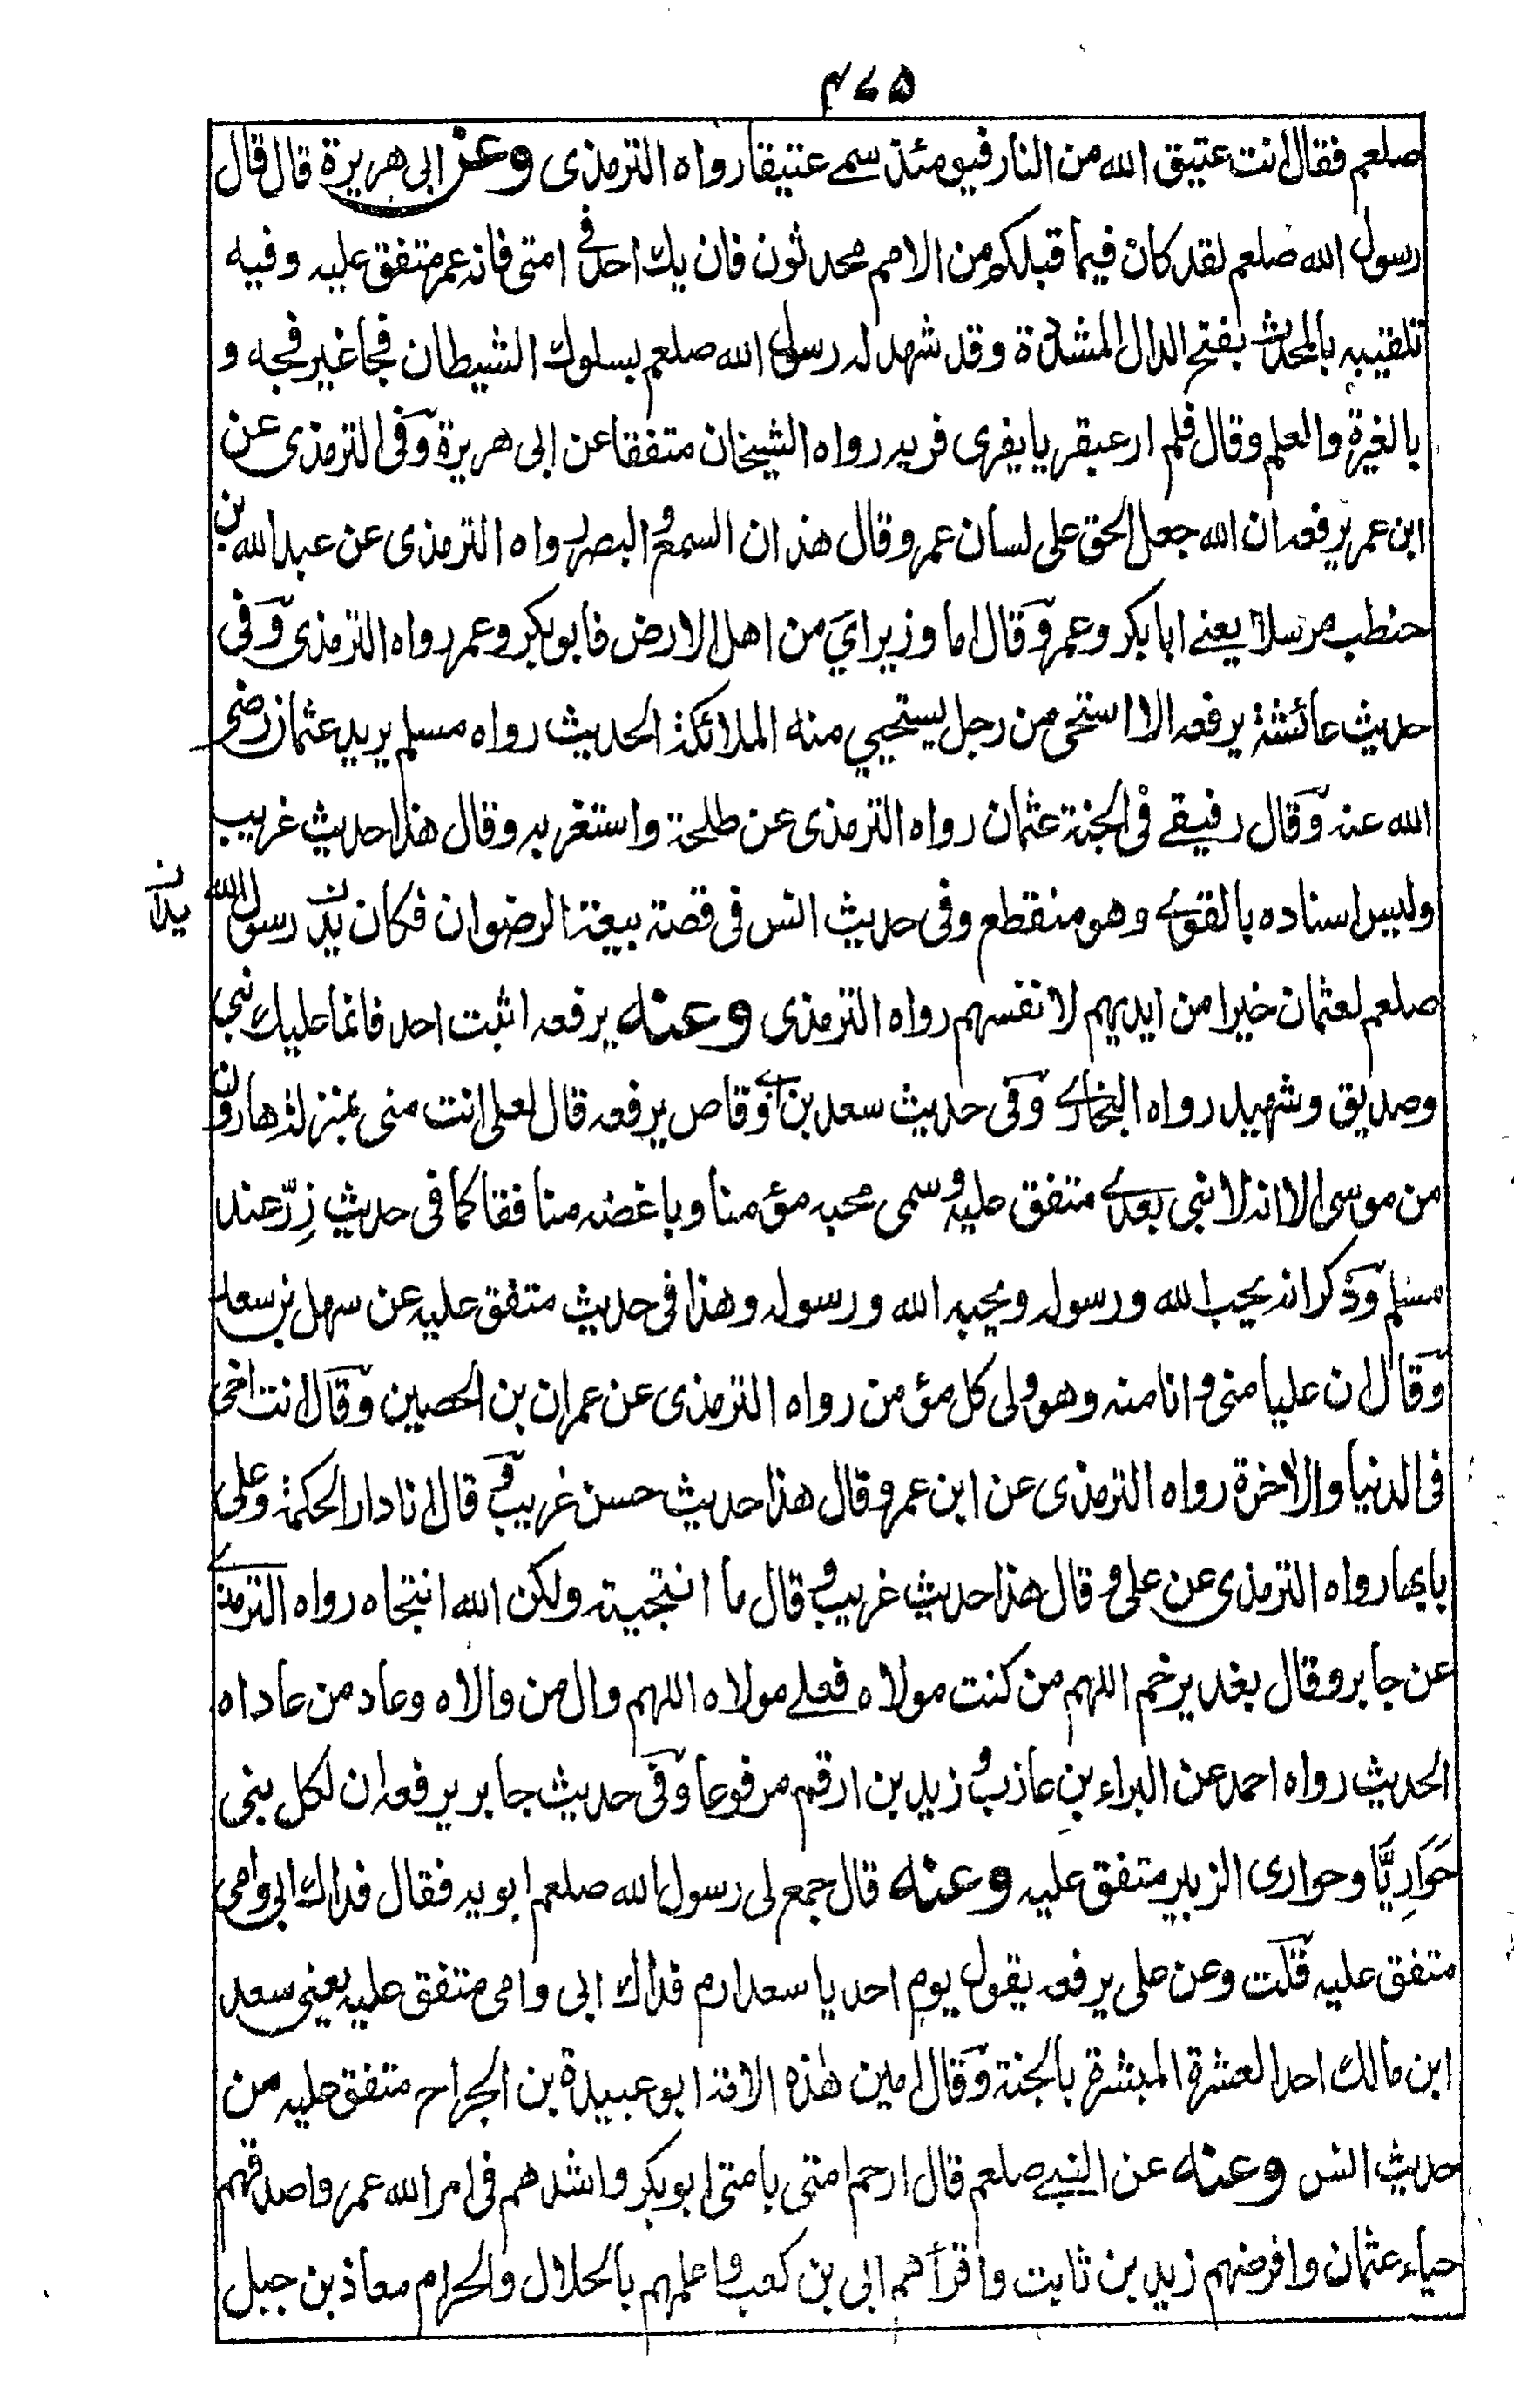 ۴۷۵
صلعم فقال انت عتيق الله من النار فيومئذ سمے عتيقا رواه الترمذى وعن ابى هريرة قال قال
رسول الله صلعم لقد كان فيما قبلكم من الامم محدثون فان يك احد فى امتى فانه عمر متفق عليه وفيه
تلقيبه بالمحدث بفتح الدال المشددة وقد شهد له رسول الله صلعم بسلوك الشيطان فجا غير فجه و
بالغيرة والعلم وقال فلم ار عبقريا يفرى فريه رواه الشيخان متفقا عن ابى هريرة وفى الترمذى عن
ابن عمر يرفعه ان الله جعل الحق على لسان عمر وقال هذان السمع و البصر رواه الترمذى عن عبد الله بن
حنطب مرسلا يعنے ابا بكر وعمر وقال اما وزيراي من اهل الارض فابو بكر وعمر رواه الترمذى وفى
حديث عائشة يرفعه الا استحى من رجل يستحيي منه الملائكة الحديث رواه مسلم يريد عثمان رضى
الله عنه وقال رفيقے فى الجنة عثمان رواه الترمذى عن طلحة واستغربه وقال هذا حديث غريب
وليس اسناده بالقوے وهو منقطع وفى حديث انس فى قصة بيعة الرضوان فكان يدن رسول الله
يدان
صلعم لعثمان خيرا من ايديهم لانفسهم رواه الترمذى وعنه يرفعه اثبت احد فانما عليك نبى
وصديق وشهيد رواه البخارے وفى حديث سعد بن ابے وقاص يرفعه قال لعلى انت منى بمنزلة هارون
من موسى الا انه لا نبى بعدے متفق عليه وسمى محبه مؤمنا وباغضه منافقا كما فى حديث زِرّ عند
مسلم وذكر انه يحب الله ورسوله ويحبه الله ورسوله وهذا فى حديث متفق عليه عن سهل بن سعد
وقال ان عليا منى وانا منه وهو ولى كل مؤمن رواه الترمذى عن عمران بن الحصين وقال انت اخى
فى الدنيا والاخرة رواه الترمذى عن ابن عمر وقال هذا حديث حسن غريب و قال انا دار الحكمة وعلى
بابها رواه الترمذى عن على و قال هذا حديث غريب و قال ما انتجيته ولكن الله انتجاه رواه الترمذے
عن جابر وقال بغدير خم اللهم من كنت مولاه فعلے مولاه اللهم وال من والاه وعاد من عاداه
الحديث رواه احمد عن البراء بن عازب و زيد بن ارقم مرفوعا وفى حديث جابر يرفعه ان لكل بنى
حَوَارِيًّا وحوارى الزبير متفق عليه وعنه قال جمع لى رسول الله صلعم ابويه فقال فداك ابى وامى
متفق عليه قلت وعن على يرفعه يقول يوم احد يا سعد ارم فداك ابى وامى متفق عليه يعنى سعد
ابن مالك احد العشرة المبشرة بالجنة وقال امين هذه الامة ابو عبيدة بن الجراح متفق عليه من
حديث انس وعنه عن النبے صلعم قال ارحم امتى بامتى ابو بكر واشدهم فى امر الله عمر واصدقهم
حياء عثمان وافرضهم زيد بن ثابت واقرأهم ابى بن كعب واعلمهم بالحلال والحرام معاذ بن جبل